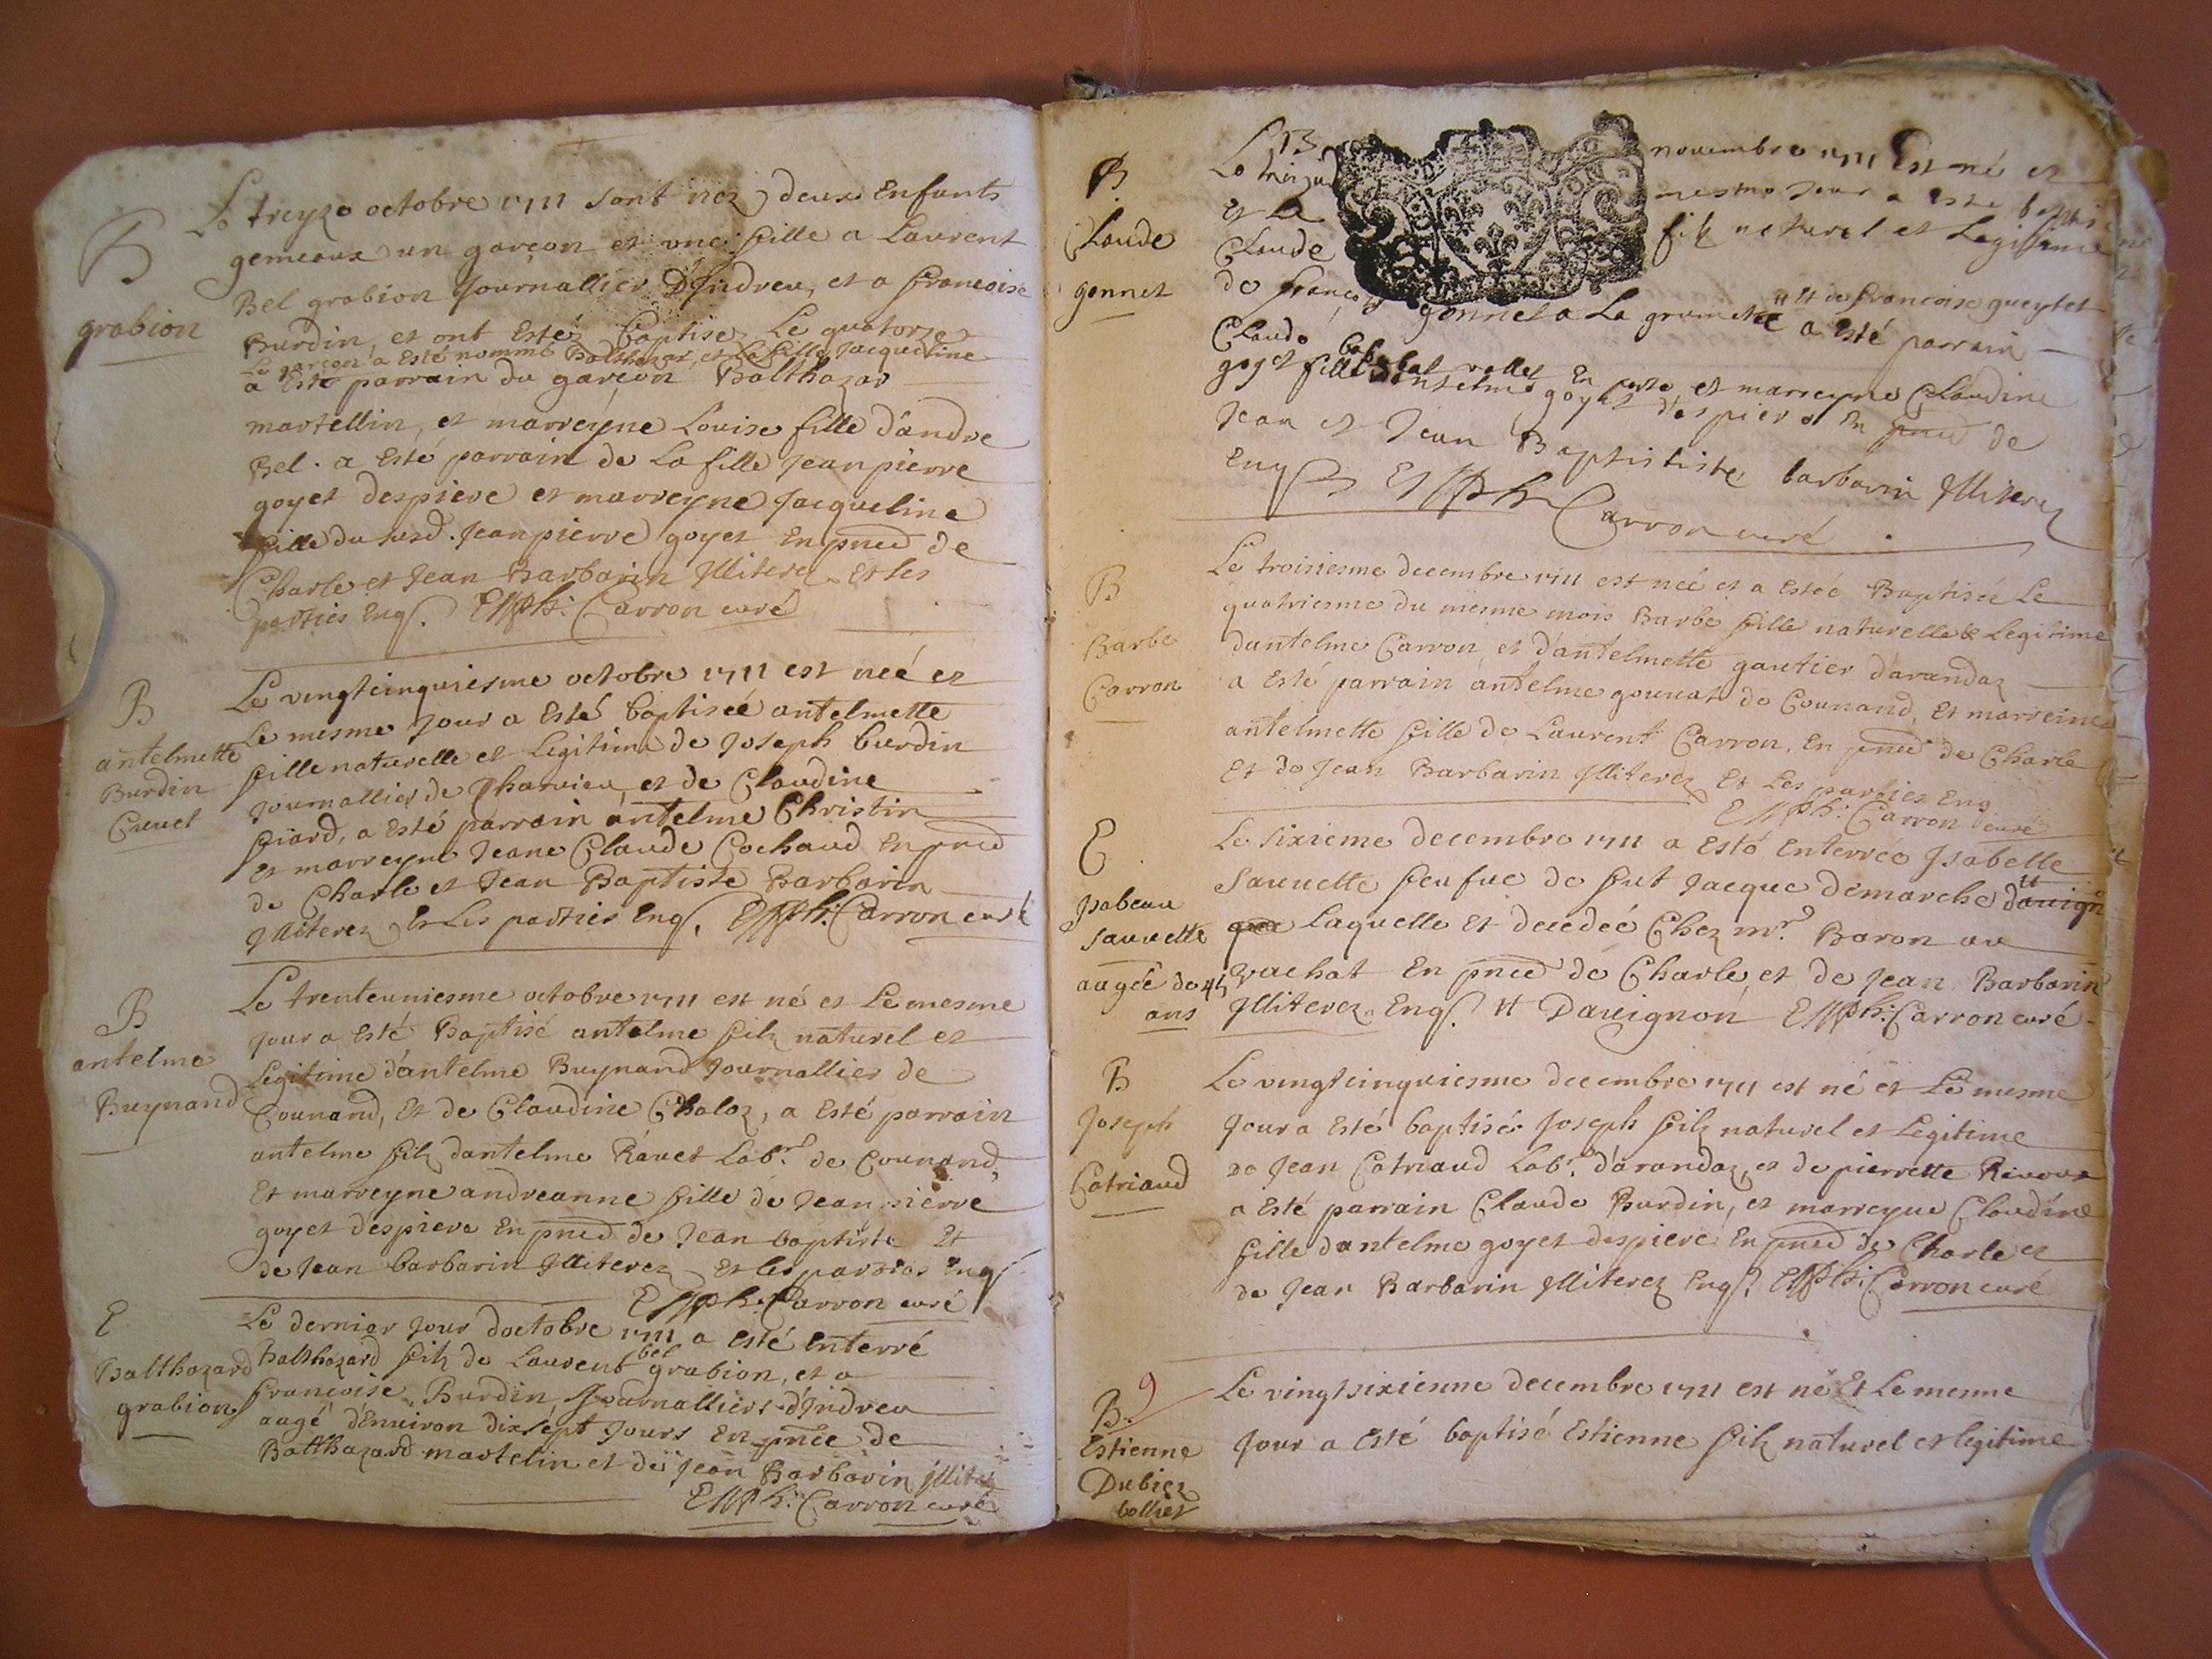 B
grabion
Le treyze octobre 1711 sont nez deux Enfants
gemeaux un garçon et une fille a Laurent
Bel grabion Journallier D'Indreu, et a francoise
Burdin, et ont Estéz Baptisez Le quatorze
Le garçon a Esté nommé Balthazar, et La fille Jacqueline
a Esté parrain du garçon Balthazar
martellin, et marreyne Louise fille d'andre
Bel. a Esté parrain de La fille Jean pierre
goyet despiere et marreyne Jacqueline
fille du susd. Jean pierre goyet En pnce de
Charle et Jean Barbarin Illiterez Et les
parties Enqs. Carron curé
B
antelmette
Burdin
Cruet
Le vingtcinquiesme octobre 1711 est neé et
Le mesme Jour a Esté baptiseé antelmette
fille naturelle et Legitime de Joseph burdin
Journallier de Charvieu, et de Claudine
fiard, a Esté parrain antelme Christin
Et marreyne Jeane Claude Cochaud En pnce
de Charle et Jean Baptiste Barbarin
Illiterez Et Les parties Enqs. Carron curé
B
antelme
Buynand
Le trenteuniesme octobre 1711 est né et Le mesme
Jour a Esté Baptisé antelme filz naturel et
Legitime d'antelme Buynand Journallier de
Counand, Et de Claudine Chaloz, a Esté parrain
antelme filz dantelme Ravet Labr. de Counand,
Et marreyne andreanne fille de Jean pierre
goyet despiere En pnce de Jean baptiste Et
de Jean barbarin Illiterez Et les parties Enqs
Carron curé
E
Balthazard
grabion
Le dernier Jour doctobre 1711 a Esté Enterré
balthazard filz de Laurent bel grabion, et a
francoise Burdin, Journalliers d'Indreu
aagé d'Enuiron dixsept Jours En pnce de
Balthazard martelin et de Jean Barbarin Illiterez
Carron curé
B
Claude
gonnet
Le 13 novembre 1711 Est né et
Et Le mesme Jour a esté baptisé
Claude filz naturel et Legitime
de françois gonnet a La grumette Et de francoise gueytet
Claude a Esté parrain
goyet fille dantelme goyet despiere En pnce de
et marreyne Claudine
Jean et Jean Baptististe barbarin Illiterez
Enqs Carron curé
B
Barbe
Carron
Le troisiesme decembre 1711 est neé et a Estéé Baptiseé Le
quatriesme du mesme mois Barbe fille naturelle & Legitime
dantelme Carron, et d'antelmette gautier d'arandaz
a Esté parrain antelme gounat de Counand, Et marreine
antelmette fille de Laurent Carron, En pnce de Charle
Et de Jean Barbarin Illiterez Et Les parties Enq
Carron curé
E
Isabeau
sauuette
aageé de 45
ans
Le sixieme decembre 1711 a Esté Enterreé Isabelle
Sauuette de fut Jacque demarche
laquelle Et decedeé Chez mr. Baron au
vachat En pnce de Charle, et de Jean Barbarin
Illiterez Enqs. # Dauignon Carron curé
B
Joseph
Cotriaud
Le vingtcinquiesme decembre 1711 est né et Le mesme
Jour a Esté baptisér Joseph filz naturel et Legitime
de Jean Cotriaud Labr. d'arandaz, et de pierrette Rauoux
a Esté parrain Claude Burdin, et marreyne Claudine
fille dantelme goyet despiere En pnce de Charle et
de Jean Barbarin Illiterez Enqs. Carron curé
B. 9
Estienne
Dubiez
bolliet
Le vingtsixienne decembre 1711 est né Et Le mesme
Jour a Esté baptisé Estienne filz naturel et legitime